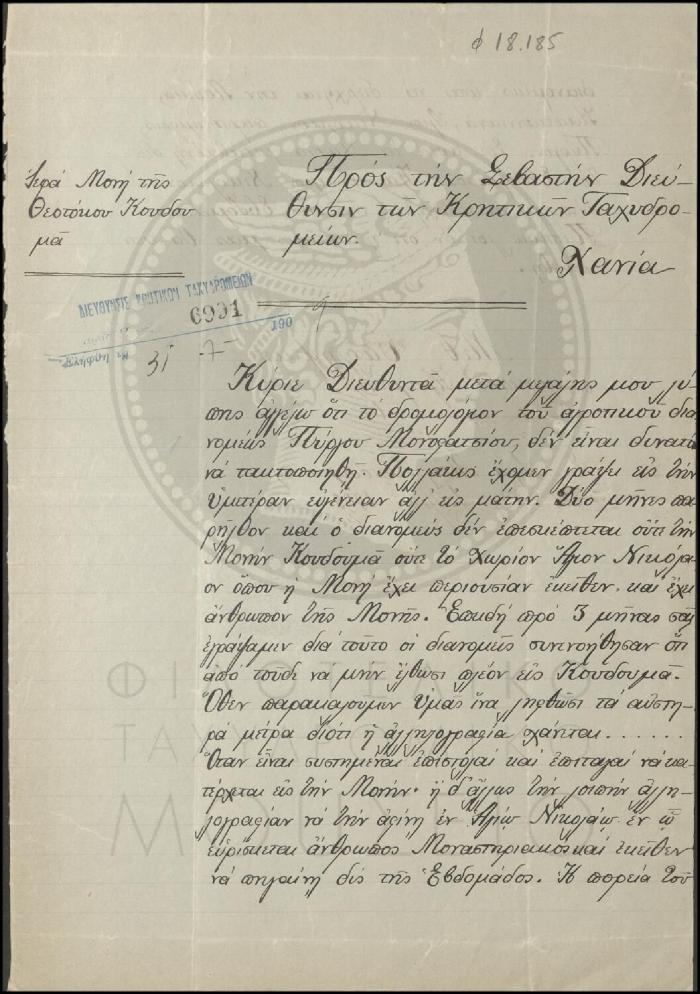 φ 18.185
Ἱερά Μονή τῆς
Θεοτόκου Κουδου-
μᾶ
Πρός τήν Σεβαστήν Διεύ-
θυνσιν τῶν Κρητικῶν Ταχυδρο-
μείων.
Χανία
ΔΙΕΥΘΥΝΣΙΣ ΚΡΗΤΙΚΩΝ ΤΑΧΥΔΡΟΜΕΙΩΝ
6991
190
31 -7-
Κύριε Διευθυντά μετά μεγάλης μου λύ-
πης ἀγγέλω ὅτι τό δρομολόγιον τοῦ ἀγροτικοῦ δια
νομέως Πύργου Μονοφατσίου, δέν εἶναι δυνατό
νά τακτοποιηθῇ. Πολλάκις ἔχομεν γράψει εἰς τήν
Ὑμετέραν εὐγένειαν ἀλλ' εἰς μάτην. Δύο μῆνες πα
ρῆλθον καί ὁ διανομεύς δέν ἐπεσκέπτεται οὔτε τήν
Μονήν Κουδουμᾶ οὔτε τό Χωρίον Ἅγιον Νικόλα-
ον ὅπου ἡ Μονή ἔχει περιουσίαν ἐκεῖθεν. καί ἔχει
ἄνθρωπον τῆς Μονῆς. Ἐπειδή πρό 3 μῆνας σᾶς
ἐγράψαμεν διά τοῦτο οἱ διανομεῖς συνενοήθησαν ὅτι
ἀπό τοῦδε να μήν ἔλθωσι πλέον εἰς Κουδουμᾶ.
Ὅθεν παρακαλοῦμεν Ὑμᾶς ἵνα ληφθῶσι τά αὐστη-
ρά μέτρα διότι ἡ ἀλληλογραφία χάνεται.......
Ὅταν εἶναι συστημέναι ἐπιστολαί καί ἐπιταγαί νά κα-
τέρχεται εἰς τήν Μονήν. ἤ δ' ἄλλως τήν λοιπήν ἀλλη-
λογραφίαν νά τήν ἀφίνῃ ἐν Ἁγίῳ Νικολάῳ ἐν ᾧ
εὑρίσκεται ἄνθρωπος Μοναστηριακός καί ἐκεῖθεν
νά πηγαίνῃ δίς τῆς Ἑβδομάδος. Ἡ πορεία τοῦ
ΦΙΛΟΤΕΛΙΚΟ
ΤΑΧΥΔΡΟΜΙΚΟ
ΜΟΥΣΕΙΟ